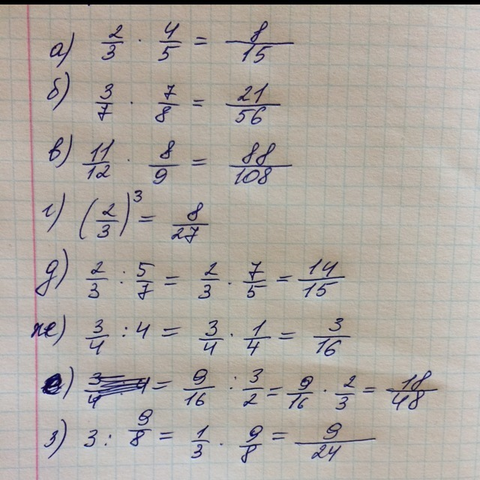 а) 2/3 · 4/5 = 8/15
б) 3/7 · 7/8 = 21/56
в) 11/12 · 8/9 = 88/108
г) (2/3)³ = 8/27
д) 2/3 : 5/7 = 2/3 · 7/5 = 14/15
ж) 3/4 : 4 = 3/4 · 1/4 = 3/16
е) = 9/16 : 3/2 = 9/16 · 2/3 = 18/48
з) 3 : 9/8 = 1/3 · 9/8 = 9/24